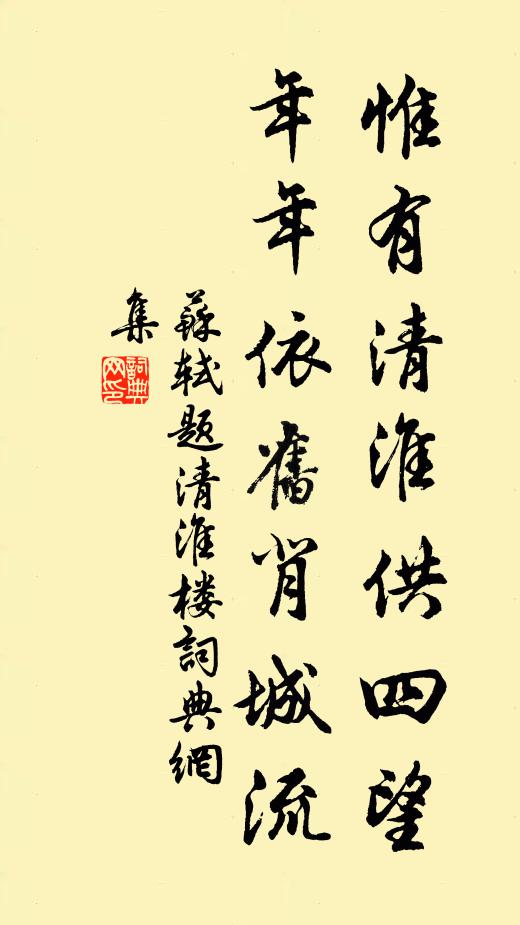 惟有清淮供四望
年年依舊背城流
蘇軾題清淮楼詞典網
集
詞典
网印